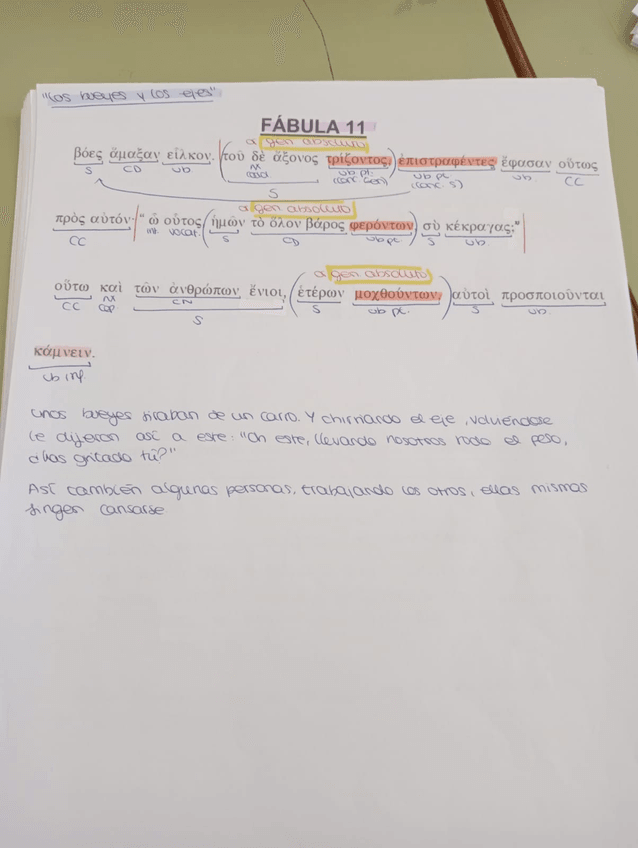 "Los bueyes y los ejes"
FÁBULA 11
gen absoluto
βόες ἅμαξαν εἷλκον. (τοῦ δὲ ἄξονος τρίζοντος,) ἐπιστραφέντες ἔφασαν οὕτως
S CD vb nx coord vb pt. (conc. gen) vb pt. (conc. S) vb CC
S
gen absoluto
πρὸς αὐτόν· "ὦ οὗτος (ἡμῶν τὸ ὅλον βάρος φερόντων,) σὺ κέκραγας;"
CC int. vocat. S CD vb pt. S vb
gen absoluto
οὕτω καὶ τῶν ἀνθρώπων ἔνιοι, (ἑτέρων μοχθούντων,) αὐτοὶ προσποιοῦνται
CC nx cop CN S vb pt. S vb
S
κάμνειν.
vb inf.
Unos bueyes tiraban de un carro. Y chirriando el eje, volviéndose
le dijeron así a este: "Oh este, llevando nosotros todo el peso,
¿has gritado tú?"
Así también algunas personas, trabajando los otros, ellas mismas
fingen cansarse